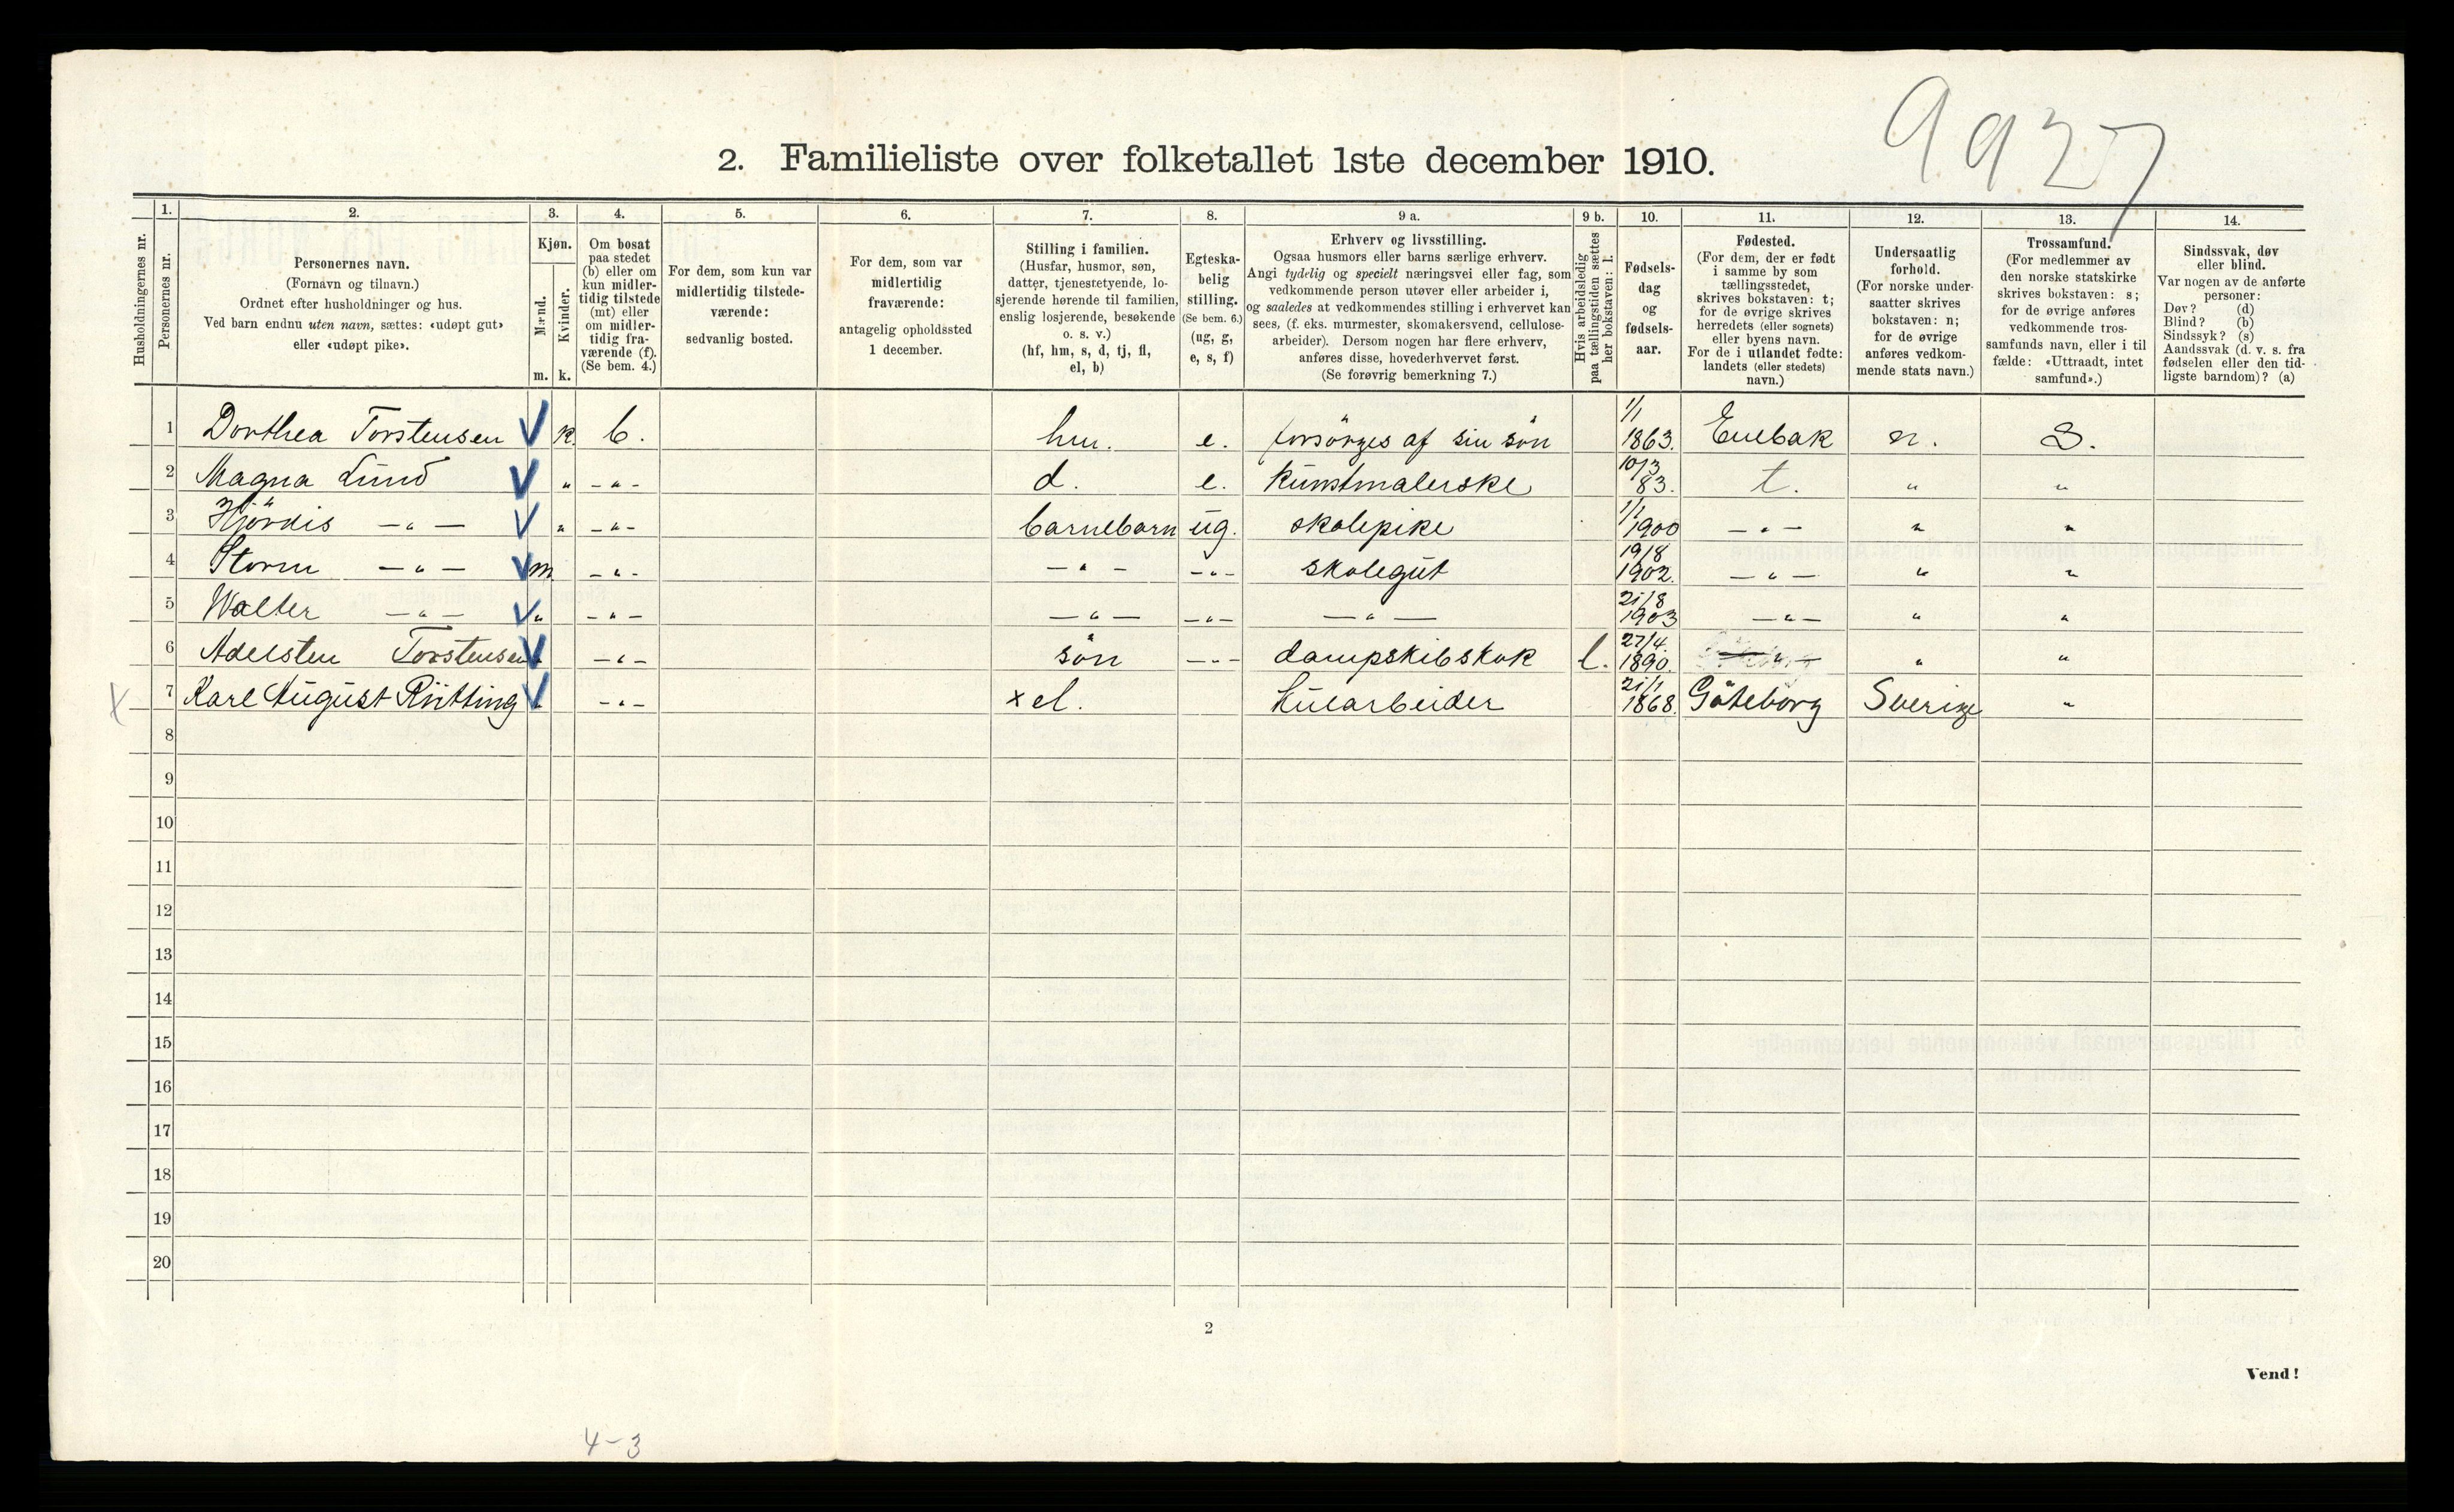 9927
2. Familieliste over folketallet 1ste december 1910.
Husholdningernes nr.
1. Personernes nr.
2. Personernes navn.
(Fornavn og tilnavn.)
Ordnet efter husholdninger og hus.
Ved barn endnu uten navn, sættes: «udøpt gut»
eller «udøpt pike».
3. Kjøn.
Mænd. Kvinder.
m. k.
4. Om bosat
paa stedet
(b) eller om
kun midler-
tidig tilstede
(mt) eller
om midler-
tidig fra-
værende (f).
(Se bem. 4.)
5. For dem, som kun var
midlertidig tilstede-
værende:
sedvanlig bosted.
6. For dem, som var
midlertidig
fraværende:
antagelig opholdssted
1 december.
7. Stilling i familien.
(Husfar, husmor, søn,
datter, tjenestetyende, lo-
sjerende hørende til familien,
enslig losjerende, besøkende
o. s. v.)
(hf, hm, s, d, tj, fl,
el, b)
8. Egteska-
belig
stilling.
(Se bem. 6.)
(ug, g,
e, s, f)
9 a. Erhverv og livsstilling.
Ogsaa husmors eller barns særlige erhverv.
Angi tydelig og specielt næringsvei eller fag, som
vedkommende person utøver eller arbeider i,
og saaledes at vedkommendes stilling i erhvervet kan
sees, (f. eks. murmester, skomakersvend, cellulose-
arbeider). Dersom nogen har flere erhverv,
anføres disse, hovederhvervet først.
(Se forøvrig bemerkning 7.)
9 b. Hvis arbeidsledig
paa tællingstiden sættes
her bokstaven: l.
10. Fødsels-
dag
og
fødsels-
aar.
11. Fødested.
(For dem, der er født
i samme by som
tællingsstedet,
skrives bokstaven: t;
for de øvrige skrives
herredets (eller sognets)
eller byens navn.
For de i utlandet fødte:
landets (eller stedets)
navn.)
12. Undersaatlig
forhold.
(For norske under-
saatter skrives
bokstaven: n;
for de øvrige
anføres vedkom-
mende stats navn.)
13. Trossamfund.
(For medlemmer av
den norske statskirke
skrives bokstaven: s;
for de øvrige anføres
vedkommende tros-
samfunds navn, eller i til
fælde: «Uttraadt, intet
samfund».)
14. Sindssvak, døv
eller blind.
Var nogen av de anførte
personer:
Døv? (d)
Blind? (b)
Sindssyk? (s)
Aandssvak (d. v. s. fra
fødselen eller den tid-
ligste barndom)? (a)
1 Dorthea Torstensen k b. hm. e. forsörges af sin sön 1/1 1863. Enebak n. S.
2 Magna Lund " - " - d. e. Kunstmalerske 10/3 83. t. " "
3 Hjördis - " - " - " - barnebarn ug. skolepike 1/1 1900 - " - " "
4 Storm - " - m - " - - " - - " - skolegut 19/8 1902. - " - " "
5 Walter - " - " - " - - " - - " - - " - 21/8 1903 - " - " "
6 Adelsten Torstensen - " - sön - " - dampskibskok l. 27/4 1890. - " - " "
X 7 Karl August Rütting - " - x el. Murarbeider 21/1 1868. Göteborg Sverige "
8
9
10
11
12
13
14
15
16
17
18
19
20
2
Vend!
4-3